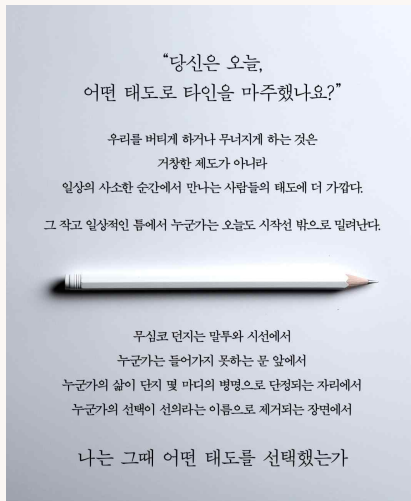 “당신은 오늘,
어떤 태도로 타인을 마주했나요?”
우리를 버티게 하거나 무너지게 하는 것은
거창한 제도가 아니라
일상의 사소한 순간에서 만나는 사람들의 태도에 더 가깝다.
그 작고 일상적인 틈에서 누군가는 오늘도 시작선 밖으로 밀려난다.
무심코 던지는 말투와 시선에서
누군가는 들어가지 못하는 문 앞에서
누군가의 삶이 단지 몇 마디의 병명으로 단정되는 자리에서
누군가의 선택이 선의라는 이름으로 제거되는 장면에서
나는 그때 어떤 태도를 선택했는가